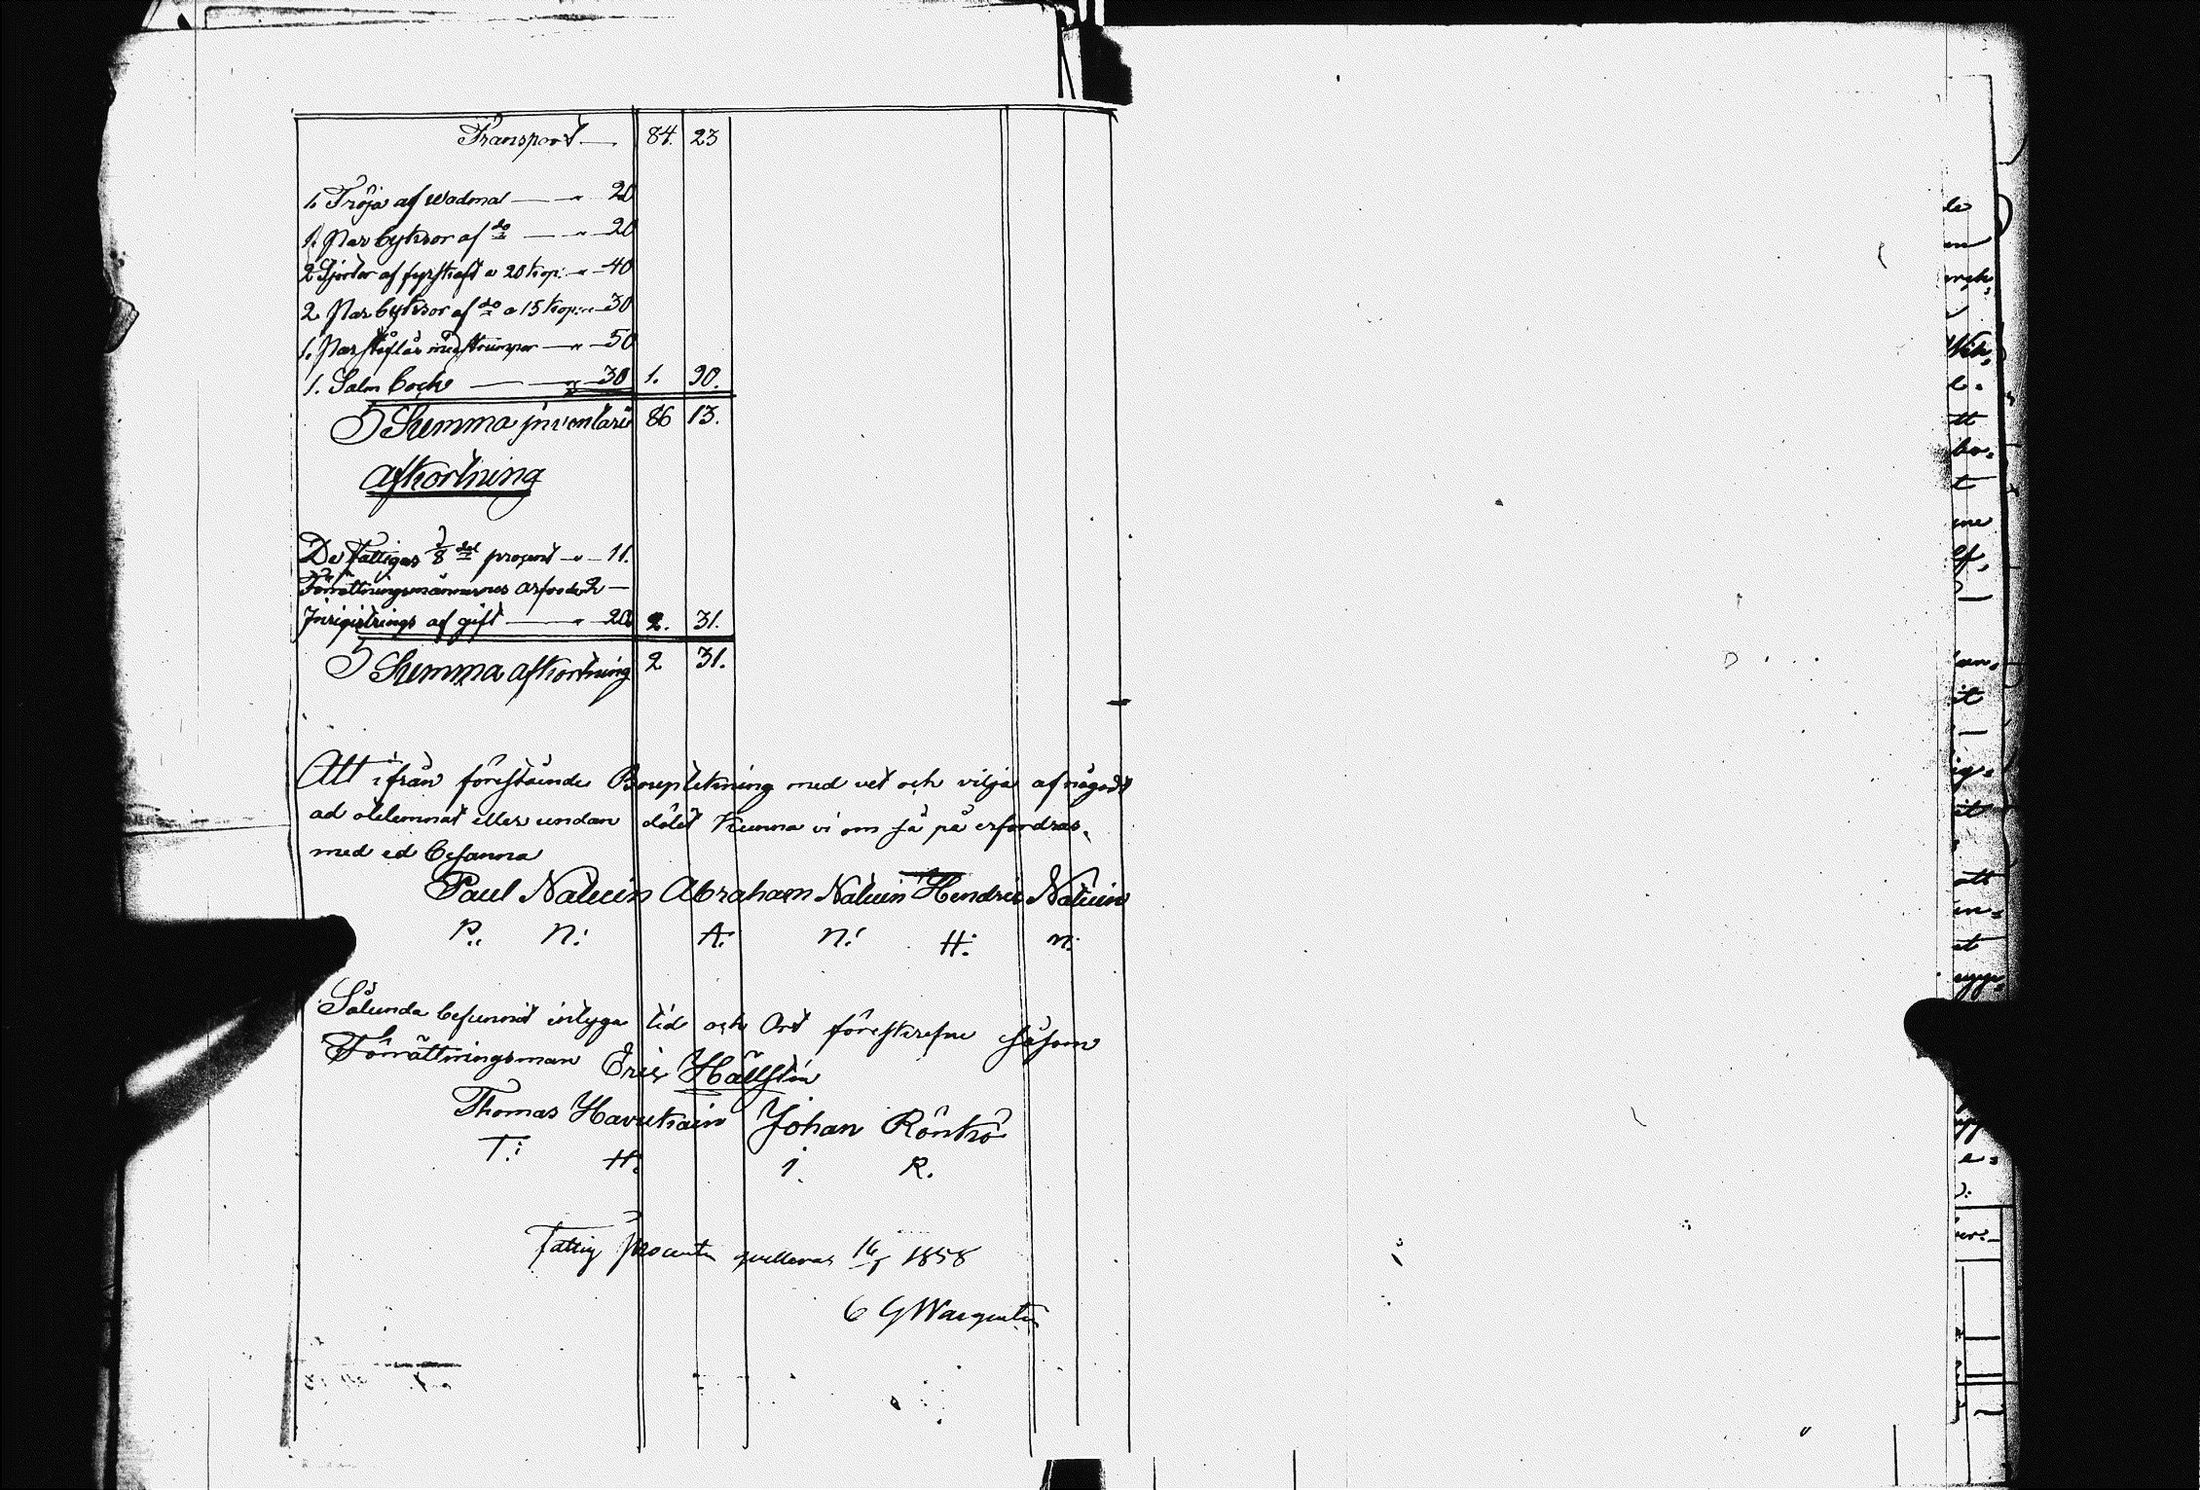 Transport — 84. 23
1. Tröja af wadmal — " — 20
1. Par byksor af do — " — 20
2 Sjortor af fyrskaft a 20 kop: " — 40
2 Par byksor af do a 15 kop: " — 30
1. Par stöflar med strumpor — " — 50
1. Salm bock — " — 30 1. 90.
Summa inventarie 86 13.
Afkortning
De Fattigas 1/8 del prosent " — 11.
Förrättningsmännernes arfvode 2 —
Inrigistrings af gift — " — 20. 2. 31.
Summa afkortning 2 31.
Att ifrån förestående Boupptekning med vet och vilja af någodt
ad olelemnat eller undan dölet kunna vi om så på erfordras
med ed besanna
Paul Naluin Abraham Naluin Hendric Naluin
P.. N: A: N: H: N:
Sålunda befunnit intyga tid och Ort föreskrefne såsom
Förrättningsman Eric Hällstin
Thomas Havukain Johan Rönkö
T: H: J. R.
Fattig Procenten qvitteras 16/5 1858
C G Wargentin
de
en
ergh.
tt
bo.
t
me
ef,
it
ig.
it
att
en.
et
e.